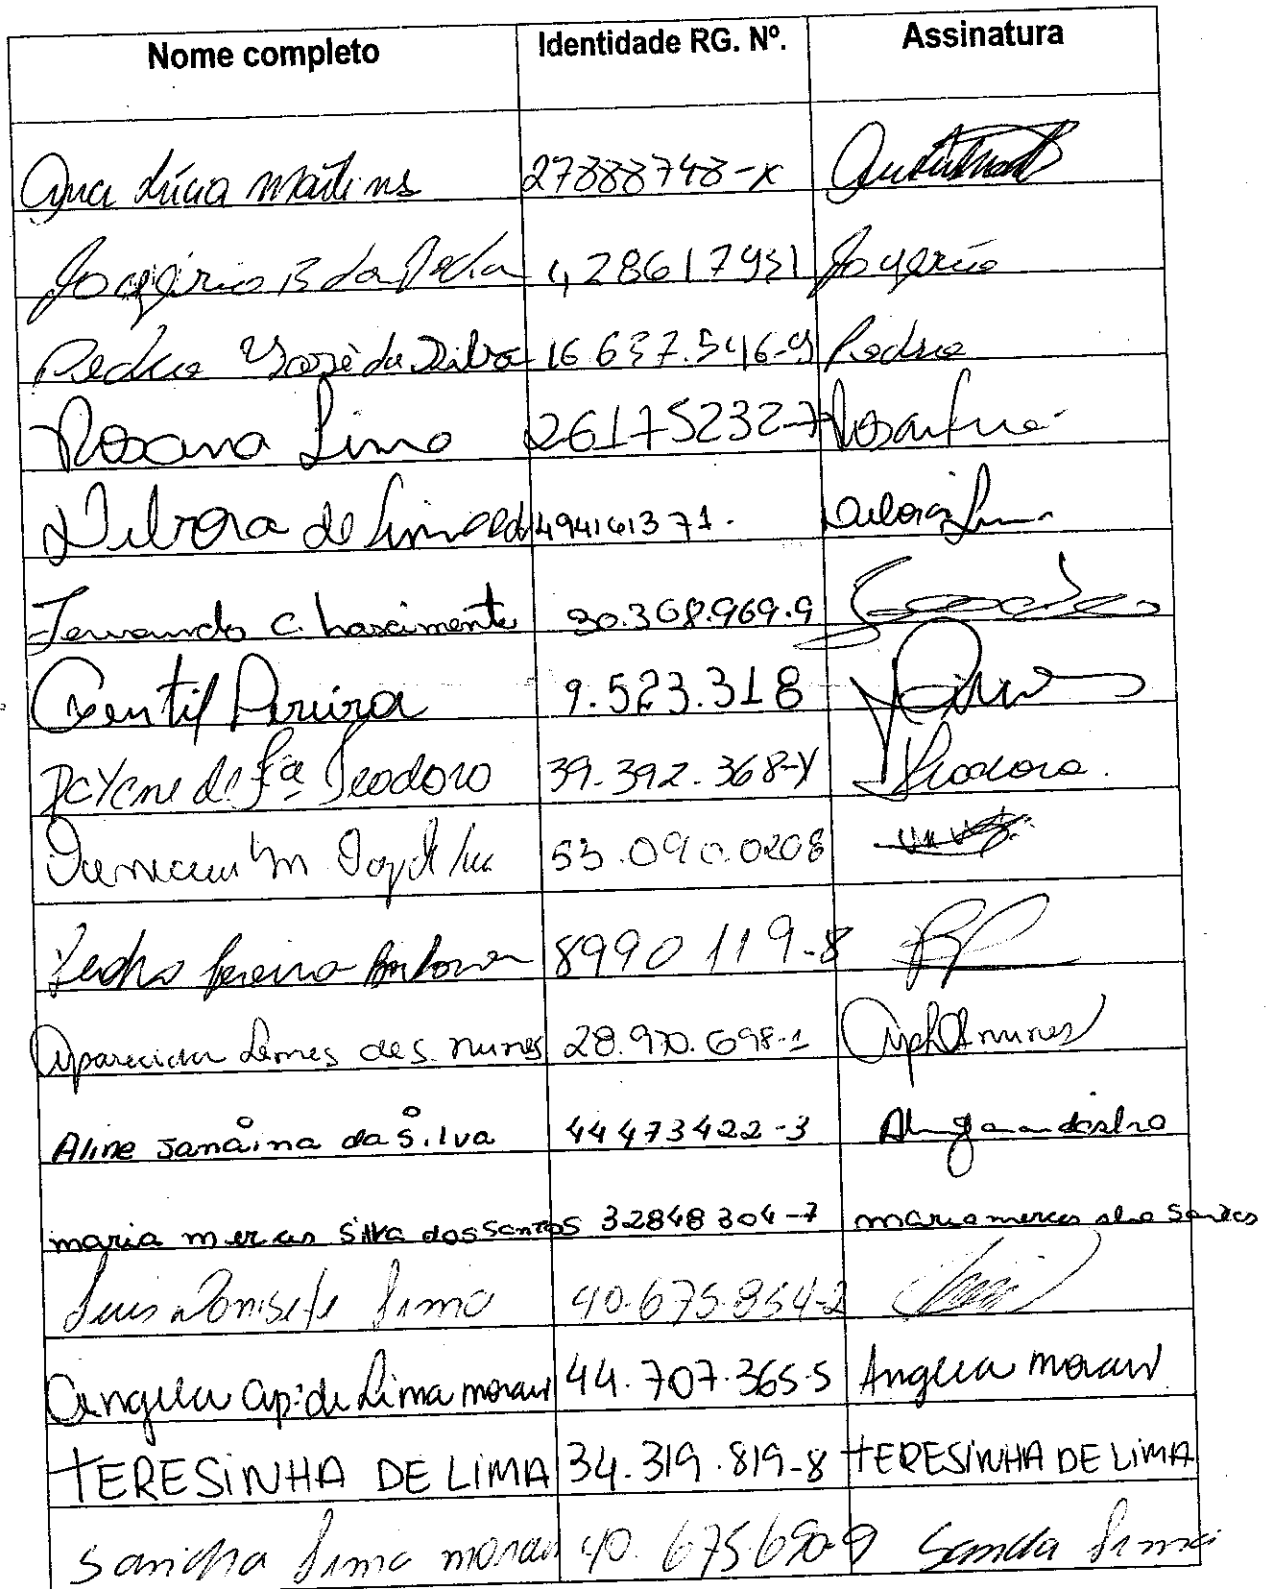 Nome completo Identidade RG. Nº. Assinatura
Ana Lúcia Martins 27888748-x
428617951 Jogério
Pedro José da Silva 16 637.546-9 Pedro
Rosana Lima 26175232-7
Debora de Lima 494161371. Debora Lima
Fernando C. Nascimento 30.368.969.9
Gentil Pereira 9.523.318
Teodoro 39.392.368-Y Teodoro.
M. 53.090.0208
Pedro Pereira 8990119-8
Aparecida Lemes de S. nunes 28.970.698-1 nunes
Aline Janaina da Silva 44473422-3
maria merces Silva dos Santos 32848304-7 maria merces Santos
Luis Donisete Lima 40.675.854-2
Angela Ap. de Lima morais 44.707.365-5 Angela morais
TERESiNHA DE LiMA 34.319.819-8 TERESiNHA DE LiMA
Sandra Lima morais 40.675.690-9 Sandra Lima